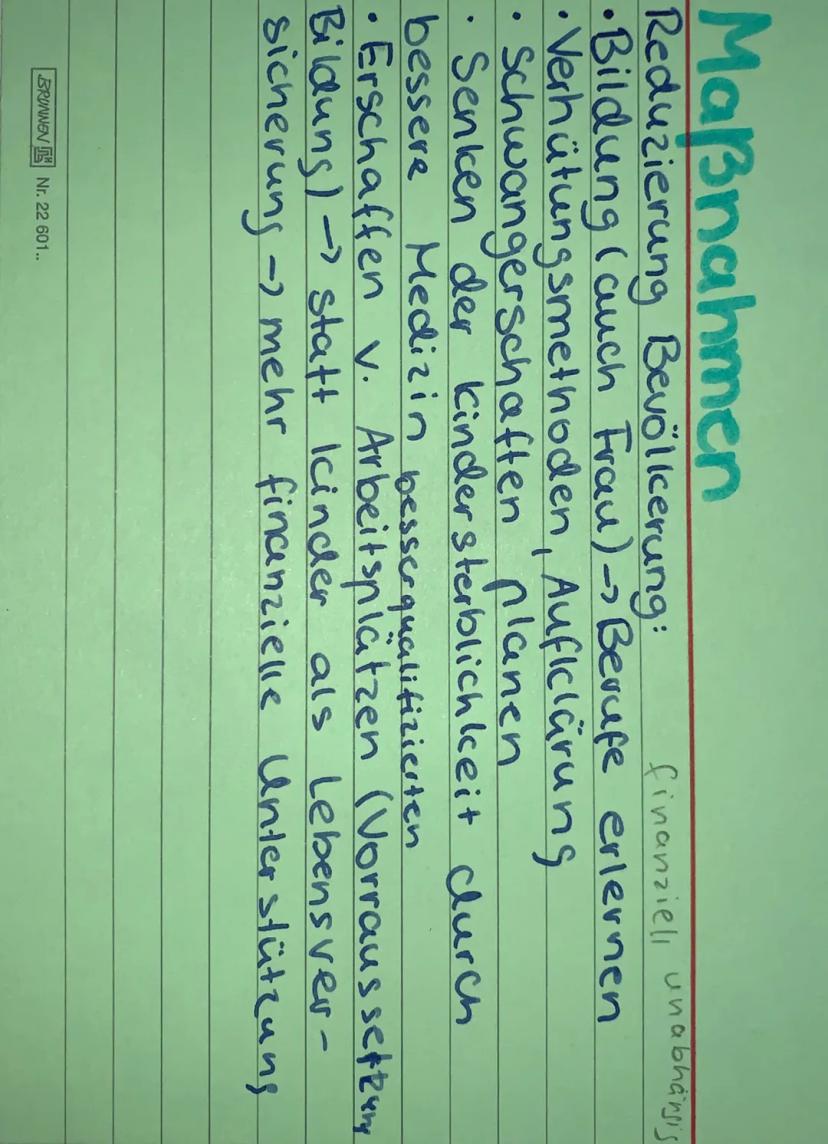 Maßnahmen
Reduzierung Bevölkerung:
finanziell unabhängig
• Bildung (auch Frau) -> Berufe erlernen
• Verhütungsmethoden, Aufklärung
• Schwangerschaften planen
• Senken der Kindersterblichkeit durch
bessere Medizin
besserqualifizierten
• Erschaffen v. Arbeitsplätzen (Vorraussetzung
Bildung) -> statt Kinder als Lebensver-
sicherung -> mehr finanzielle Unterstützung
BRUNNEN Nr. 22 601..